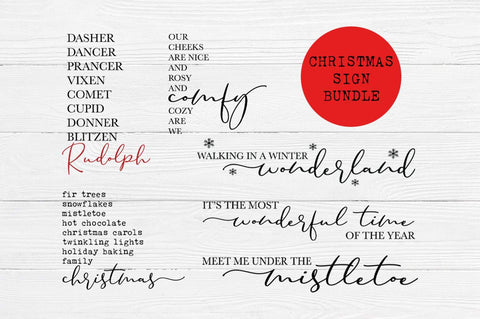 DASHER
DANCER
PRANCER
VIXEN
COMET
CUPID
DONNER
BLITZEN
Rudolph
OUR
CHEEKS
ARE NICE
AND
ROSY
AND
comfy
COZY
ARE
WE
CHRISTMAS
SIGN
BUNDLE
WALKING IN A WINTER wonderland
fir trees
snowflakes
mistletoe
hot chocolate
christmas carols
twinkling lights
holiday baking
family
christmas
IT'S THE MOST
wonderful time
OF THE YEAR
MEET ME UNDER THE
mistletoe